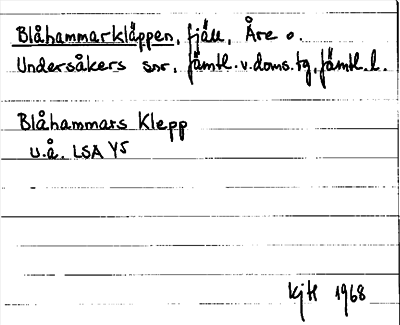 Blåhammarkläppen, fjäll, Åre o.
Undersåkers snr, Jämtl. v. doms. tg, Jämtl. l.
Blåhammars Klepp
u.å. LSA Y5
KjH 1968